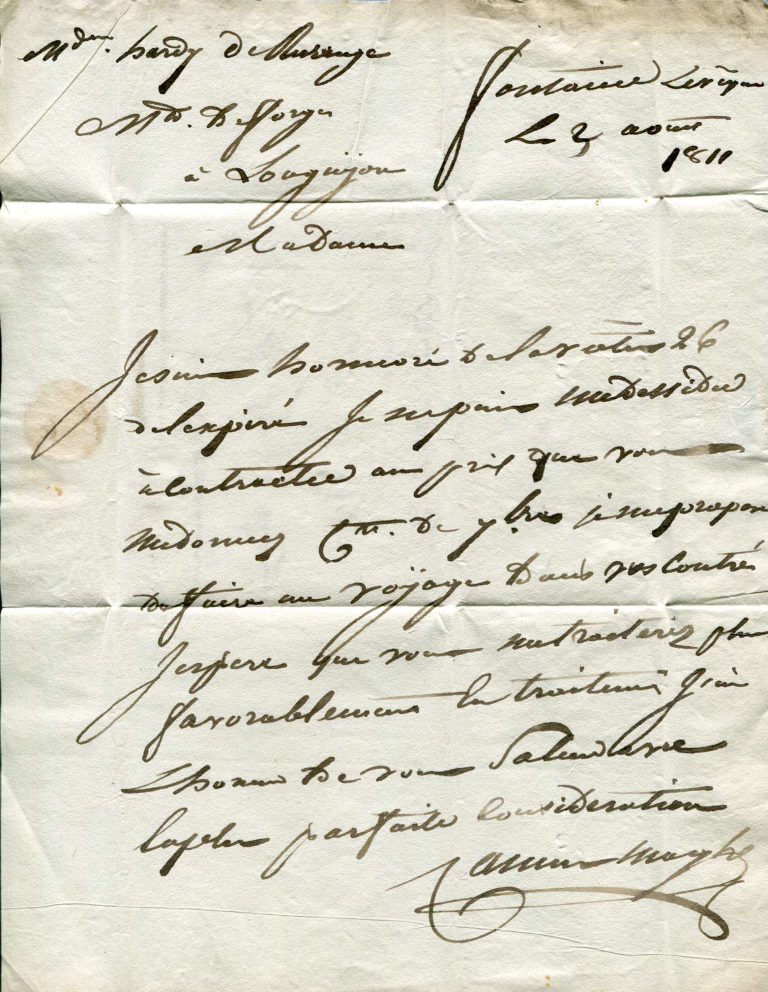 Mdem. hardy De
Md. De forge
à Longuijon
Madame
fontaine Levéque
Le 3 aout
1811
Je suis honnoré de la votre 26
de lexpiré Je ne puis me dessider
à contracter au prix que vous
me donnez Ct. De 7bre je me propose
De faire un voyage Dans vos Contrés
Jespere que vous me traiterez plus
favorablement En traitant Jai
Lhonneur De vous Saluer avec
la plus parfaite Consideration